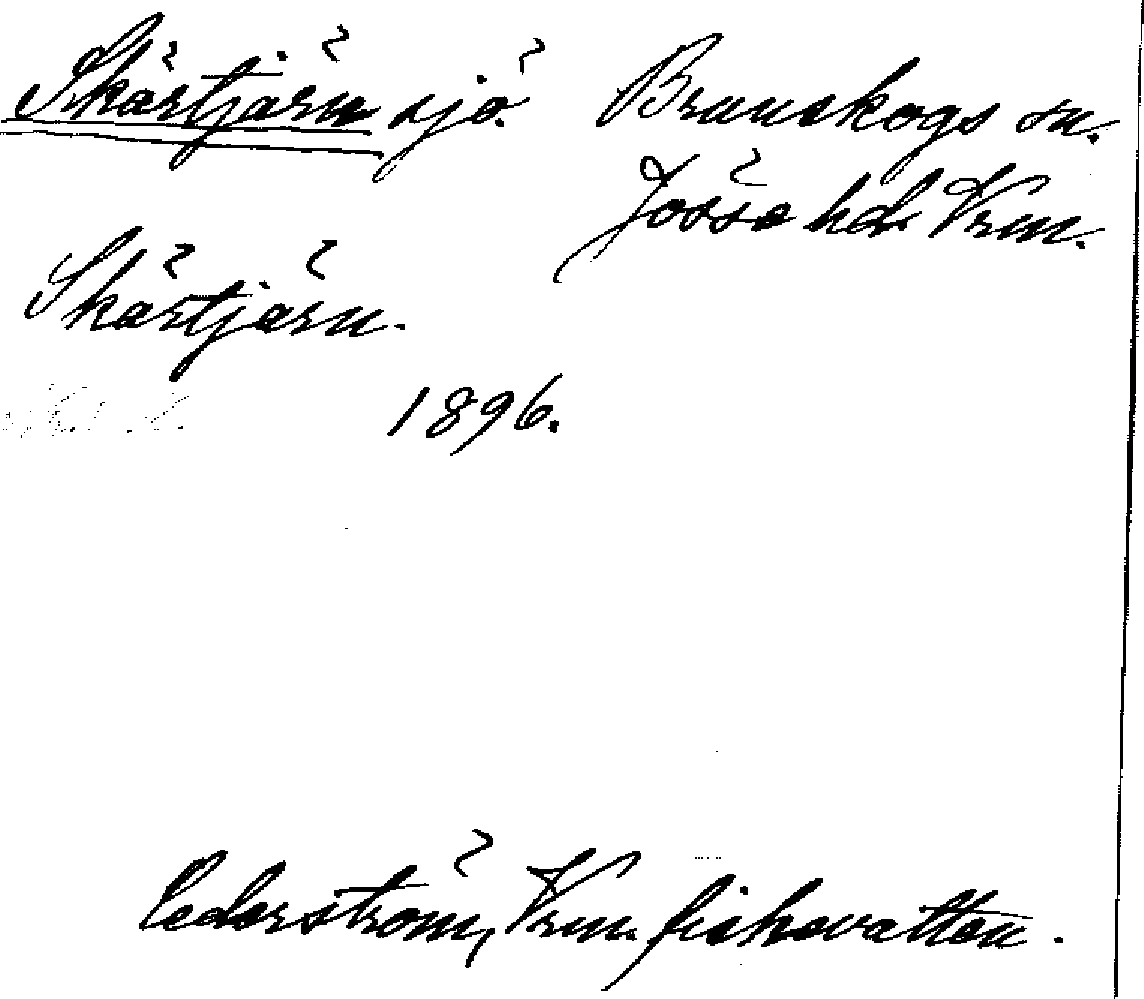 Skärtjärn sjö. Brunskogs sn.
Jösse hd. Vrm.
Skärtjärn.
1896.
Cederström, Vrm. fiskevatten.